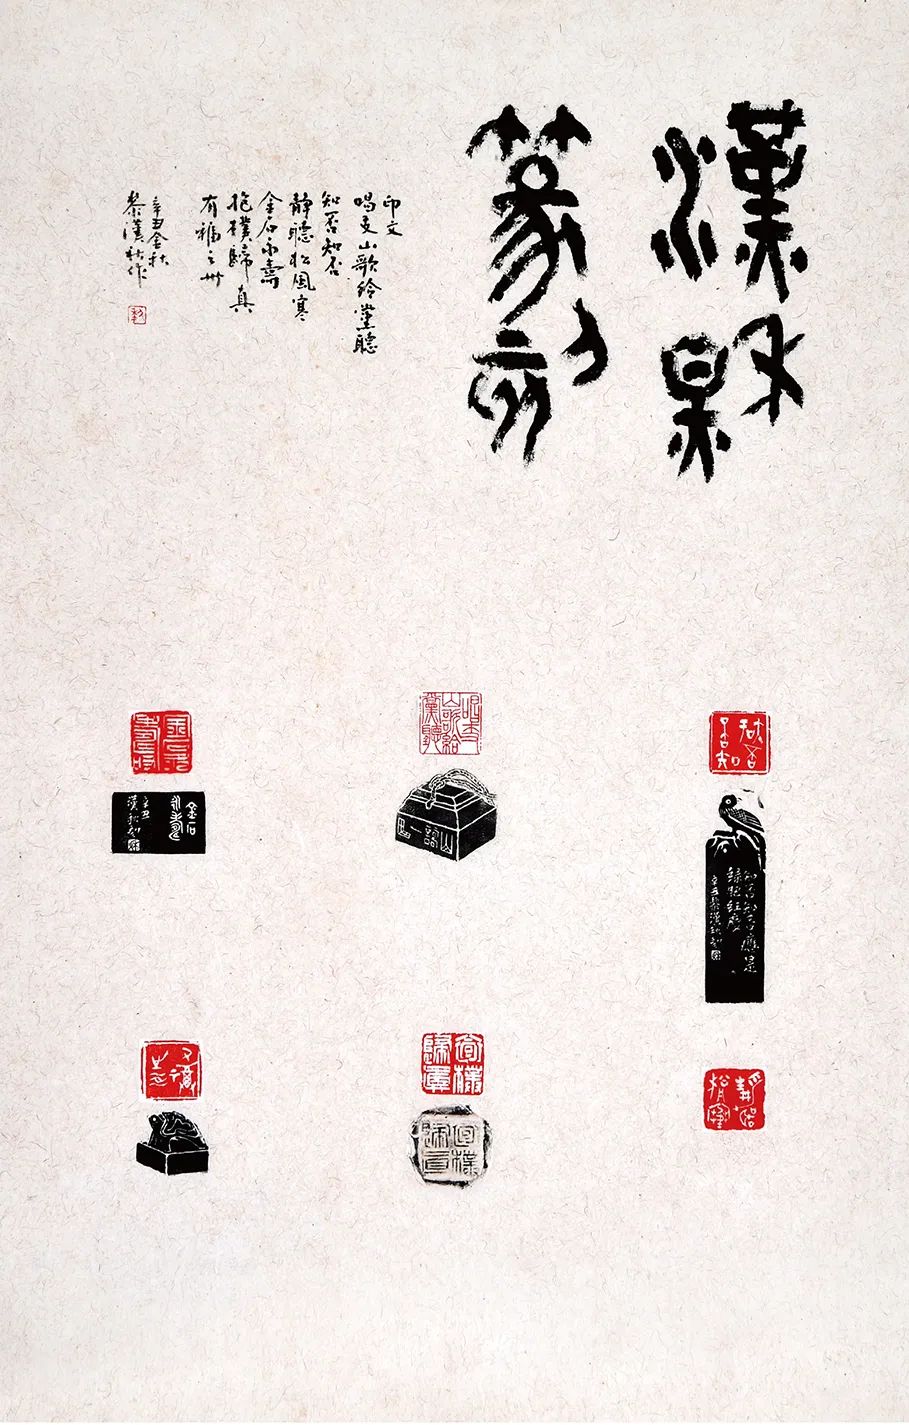 漢秋
篆刻
印文
唱支山歌给黨聽
知否知否
静聽松風寒
金石永壽
抱樸歸真
有福之州
辛丑金秋
黎漢秋作
知否知否
知否知否應是
綠肥紅瘦
辛丑黎漢秋刻
唱支山歌給黨聽
金石永壽
金石
永壽
辛丑
漢秋刻
静聽松風寒
抱樸歸真
有福之州